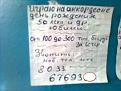 Играю на аккордеоне
день рождения
50 лет и др.
юбилеи.
от 100 до 300
Звонить
8 0 33
67693